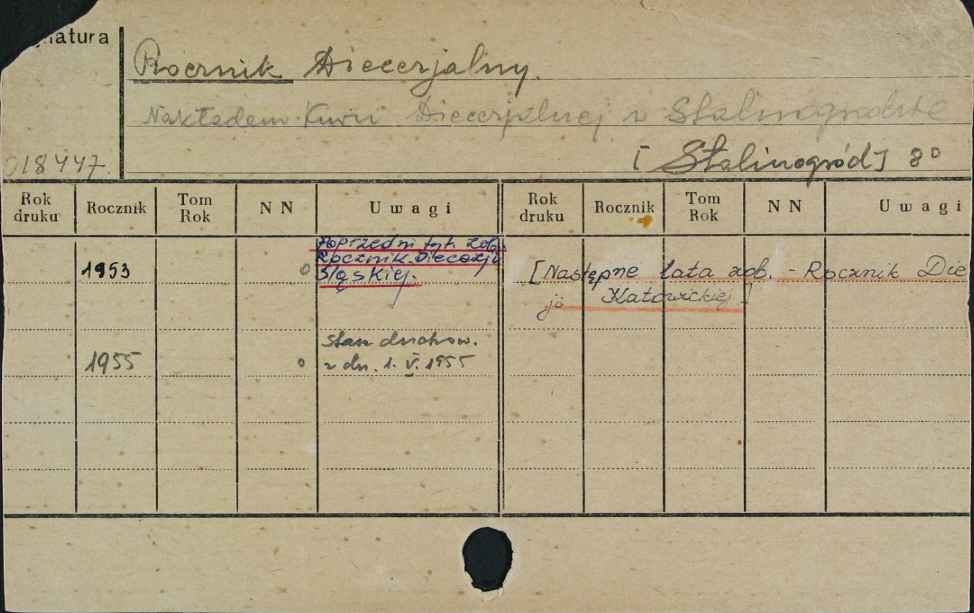 gnatura
Rocznik Diecezjalny.
Nakładem Kurii Diecezjalnej w Stalinogrodzie
018447. [Stalinogród] 8º
Rok druku Rocznik Tom Rok N N Uwagi Rok druku Rocznik Tom Rok N N Uwagi
Poprzedni tyt. zob.
Rocznik Diecezji
1953 o Śląskiej. [Następne lata zob. - Rocznik Die
ji Katowickiej]
stan duchow.
1955 o z dn. 1. V. 1955